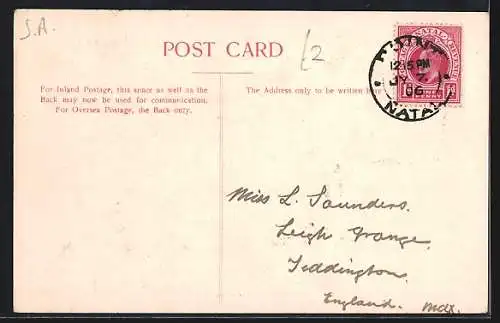 S.A.
POST CARD
£2
For Inland Postage, this space as well as the
Back may now be used for communication.
For Oversea Postage, the Back only.
The Address only to be written here
NATAL
POINT
12.15 PM
JY 7
06
NATAL
Miss L. Saunders.
Leigh Grange.
Teddington.
England. Mdx.